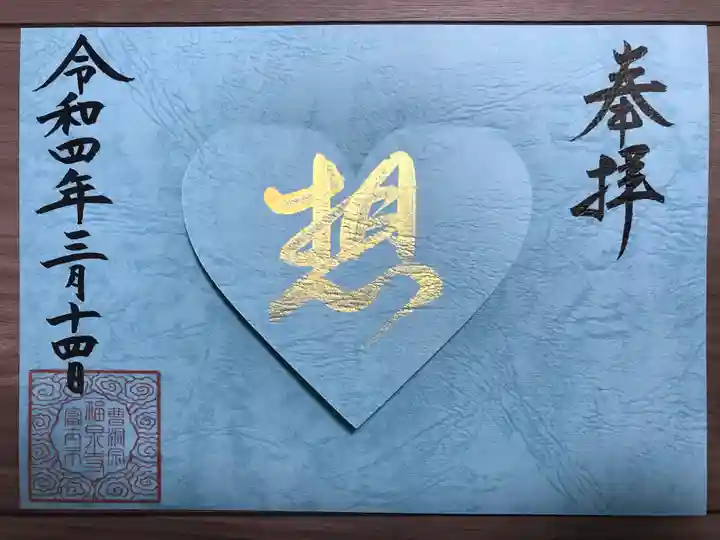 奉拝
想
令和四年三月十四日
曹洞宗
福泉寺